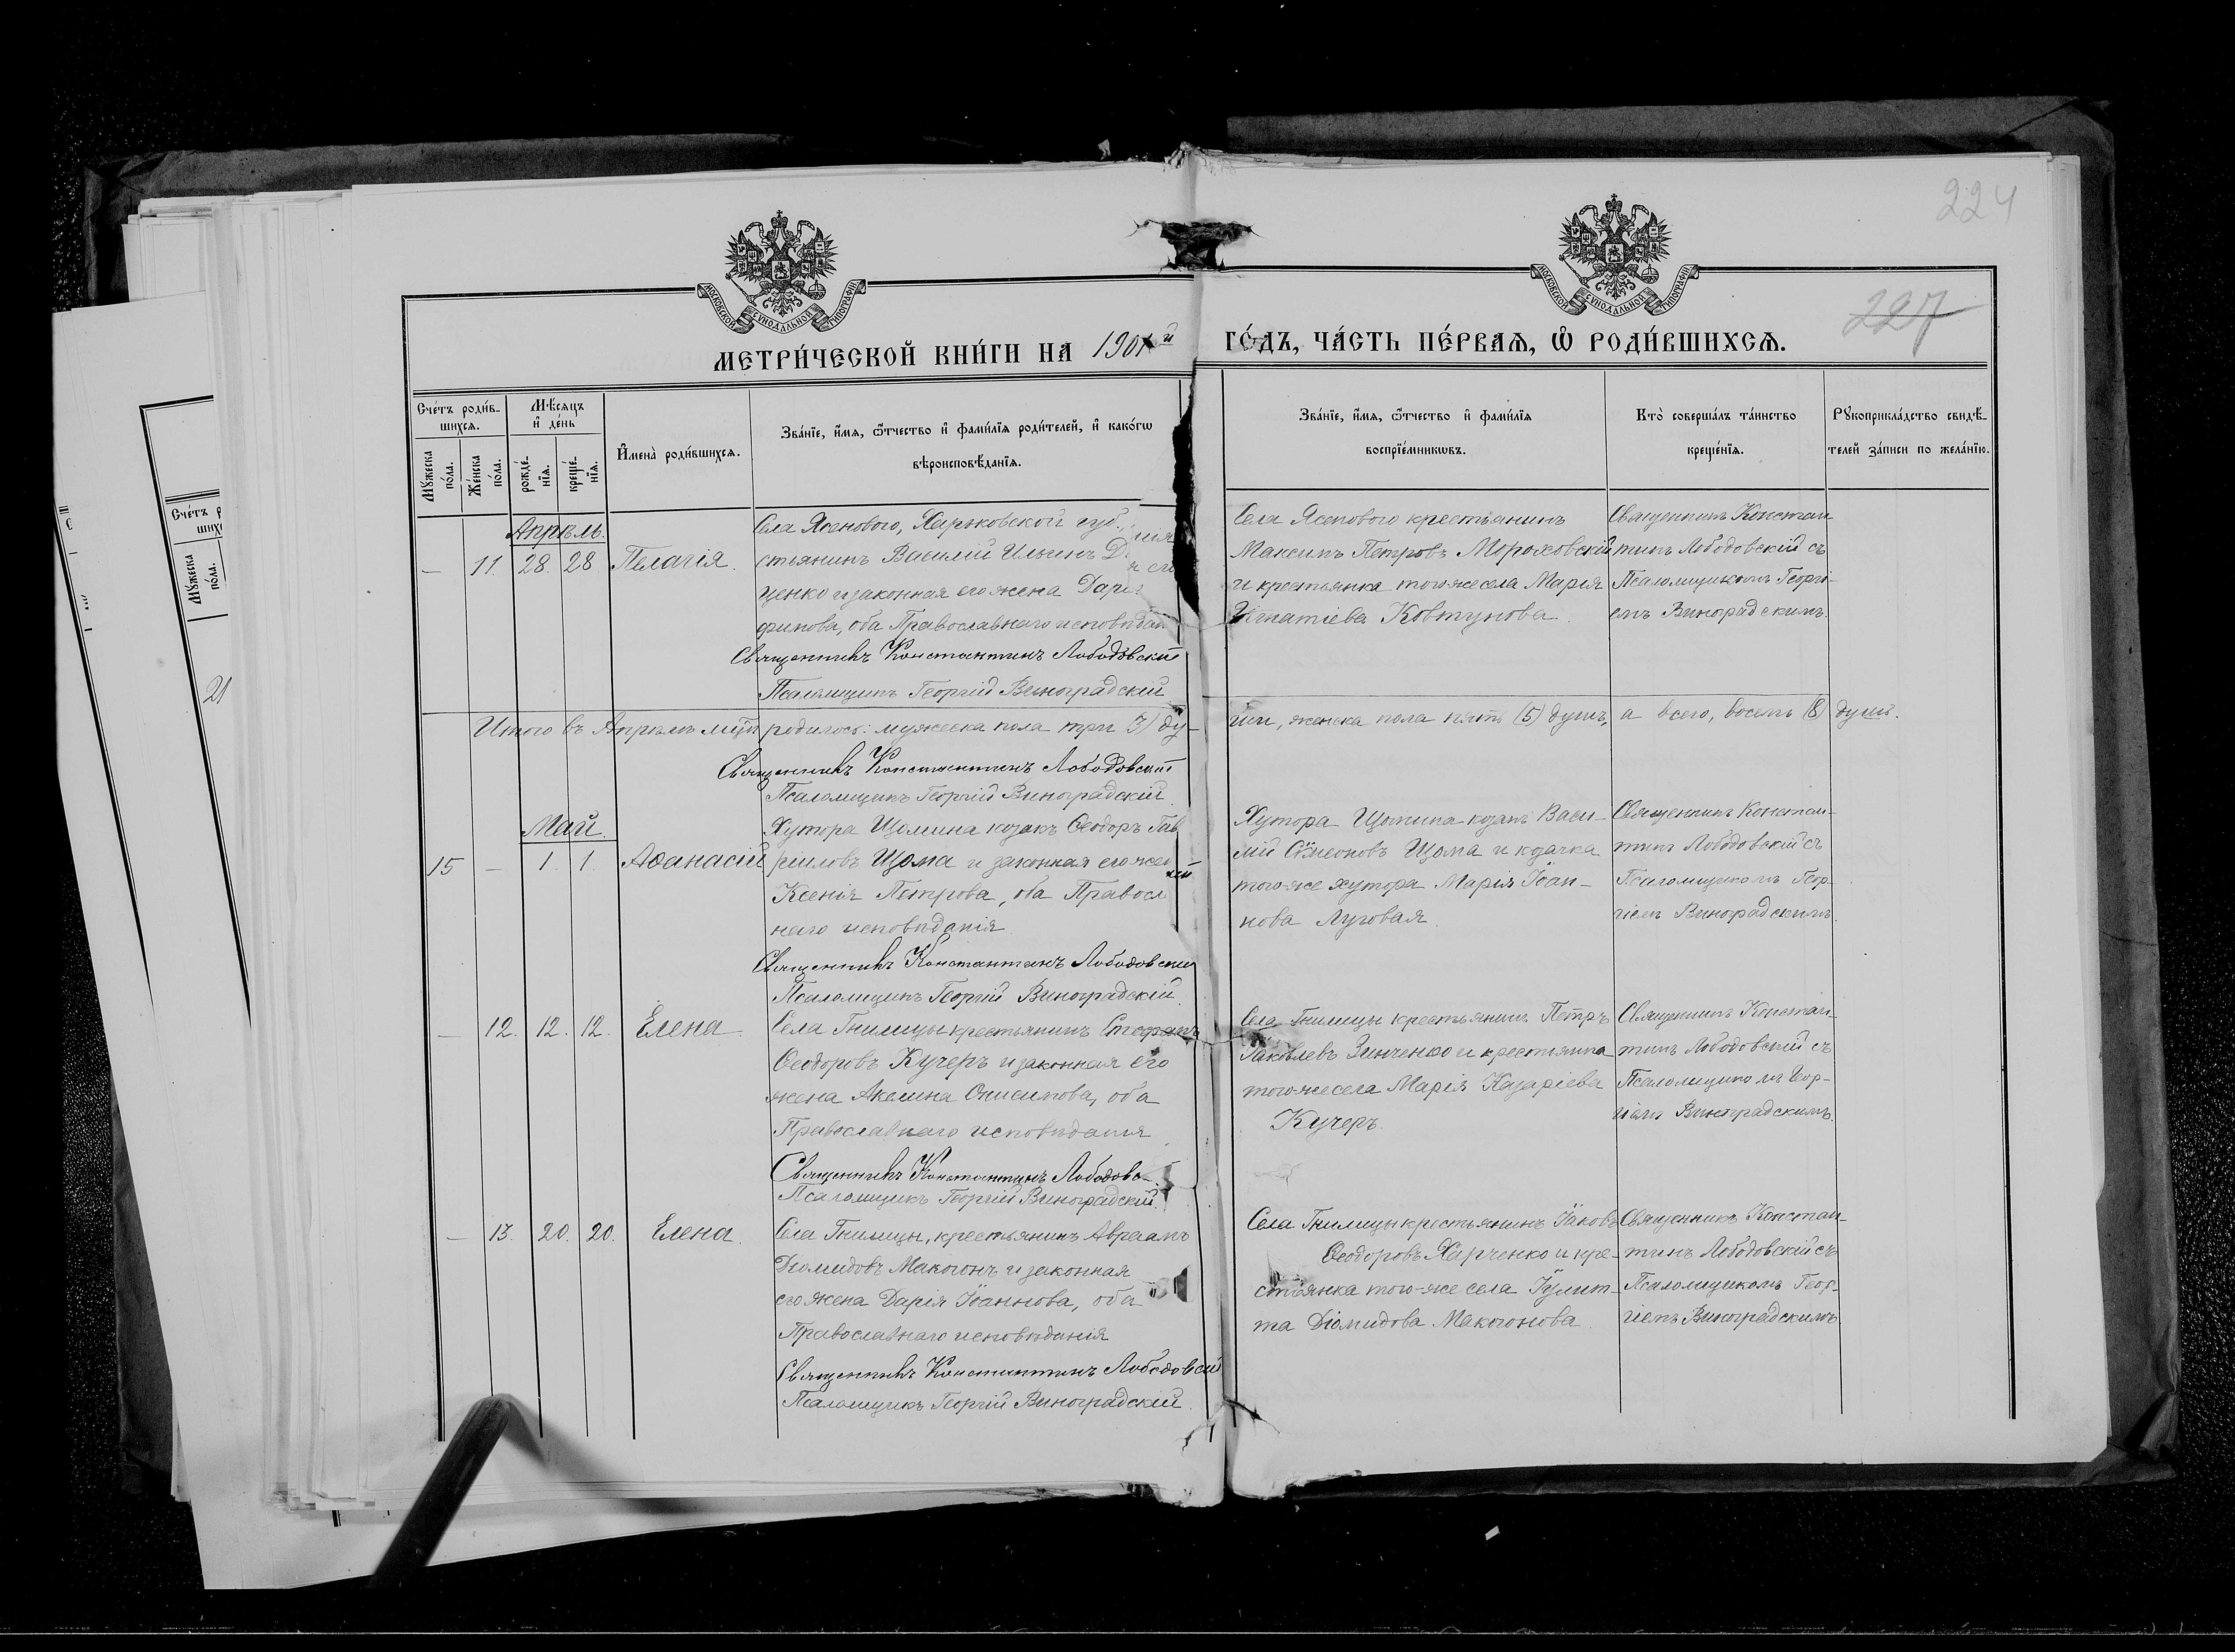 224
227
МОСКОВСКОЙ СѴНОДАЛЬНОЙ ТИПОГРАФІИ
МОСКОВСКОЙ СѴНОДАЛЬНОЙ ТИПОГРАФІИ
МЕТРИ́ЧЕСКОЙ КНИ́ГИ НА 1901й ГО́ДЪ, ЧА́СТЬ ПЕ́РВАѦ, Ѡ҆ РОДИ́ВШИХСѦ.
Сче́тъ роди́в-
шихсѧ.
Мꙋ́жеска
по́ла.
Же́нска
по́ла.
Мѣ́сѧцъ
и҆ де́нь
рожде́-
нїѧ.
креще́-
нїѧ.
И҆мена̀ роди́вшихсѧ.
Зва́нїе, и҆́мѧ, ѻ҆́тчество и҆ фами́лїѧ роди́телей, и҆ како́гѡ
вѣроисповѣ́данїѧ.
Зва́нїе, и҆́мѧ, ѻ҆́тчество и҆ фами́лїѧ
воспрїе́мникѡвъ.
Кто̀ соверша́лъ та́инство
креще́нїѧ.
Рꙋкоприкла́дство свидѣ́-
телей за́писи по жела́нїю.
Апрѣль.
— 11. 28. 28 Пелагія.
Села Ясенового, Харьковской губ.,
стьянинъ Василій Ильинъ
ценко и законная его жена
финова, оба Православнаго исповѣдан
Священникъ Константинъ Лободовскій
Псаломщикъ Георгій Виноградскій
Села Ясенового крестьянинъ
Максимъ Петровъ Мороховскій
и крестьянка того же села Марія
Игнатіева Ковтунова.
Священникъ Констан
тинъ Лободовскій съ
Псаломщикомъ Георгі-
емъ Виноградскимъ.
Итого въ Апрѣлѣ мцѣ родилось: мужеска пола три (3) ду-
ши, женска пола пять (5) душъ, а всего, восемь (8) душъ.
Священникъ Константинъ Лободовскій
Псаломщикъ Георгій Виноградскій.
Май.
15 — 1. 1. Аѳанасій
Хутора Щомина козакъ Ѳеодоръ Гав
ріиловъ Щома и законная его жен
Ксенія Петрова, оба Правосл
наго исповѣданія.
Священникъ Константинъ Лободовскій
Псаломщикъ Георгій Виноградскій.
Хутора Щомина козакъ Васи-
лій Сѵмеоновъ Щома и козачка
того-же хутора Марія Іоан-
нова Луговая.
Священникъ Констан-
тинъ Лободовскій съ
Псаломщикомъ Геор-
гіемъ Виноградскимъ.
— 12. 12. 12. Елена
Села Гнилицы крестьянинъ Стефанъ
Ѳеодоровъ Кучеръ и законная его
жена Акилина Онисимова, оба
Православнаго исповѣданія.
Священникъ Константинъ Лободовс
Псаломщикъ Георгій Виноградскій.
Села Гнилицы крестьянинъ Петръ
Іаковлевъ Зинченко и крестьянка
того-же села Марія Назаріева
Кучеръ.
Священникъ Констан-
тинъ Лободовскій съ
Псаломщикомъ Геор-
гіемъ Виноградскимъ.
— 13. 20. 20. Елена.
Села Гнилицы, крестьянинъ Авраамъ
Діомидовъ Макогонъ и законная
его жена Дарія Іоаннова, оба
Православнаго исповѣданія
Священникъ Константинъ Лободовскій
Псаломщикъ Георгій Виноградскій.
Села Гнилицы крестьянинъ Іаковъ
Ѳеодоровъ Харченко и кре-
стьянка того-же села Іулит-
та Діомидова Макогонова.
Священникъ Констан-
тинъ Лободовскій съ
Псаломщикомъ Геор-
гіемъ Виноградскимъ
21